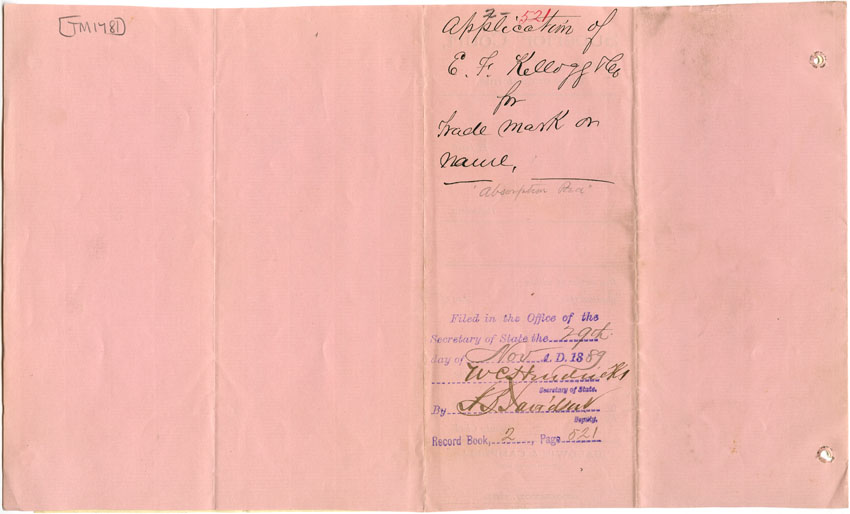 TM1781
2-521
Application of
E. F. Kellogg & Co
for
trade mark on
name.
"Absorption
Filed in the Office of the
Secretary of State the 29th
day of Nov A. D. 1889
W C Hendricks
Secretary of State.
By Davidson
Deputy.
Record Book, 2, Page 521